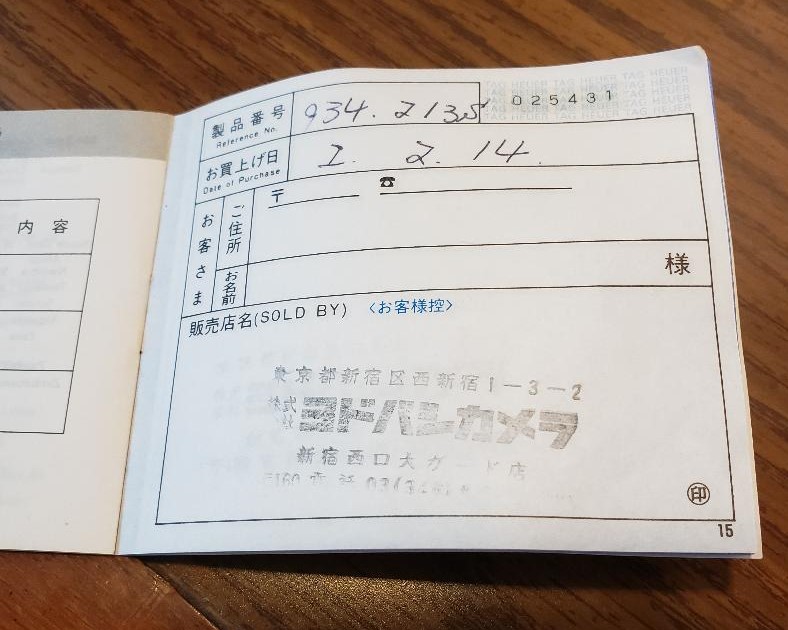 内 容
製品番号 934.213S 025431
Reference No.
TAG HEUER TAG HEUER TAG HEUER
お買上げ日 2. 2. 14.
Date of Purchase
お客さま
ご住所 〒 ☎
お名前 様
販売店名(SOLD BY) 〈お客様控〉
東京都新宿区西新宿1-3-2
株式会社 ヨドバシカメラ
新宿西口大ガード店
〒160 電話 03(3
印
15